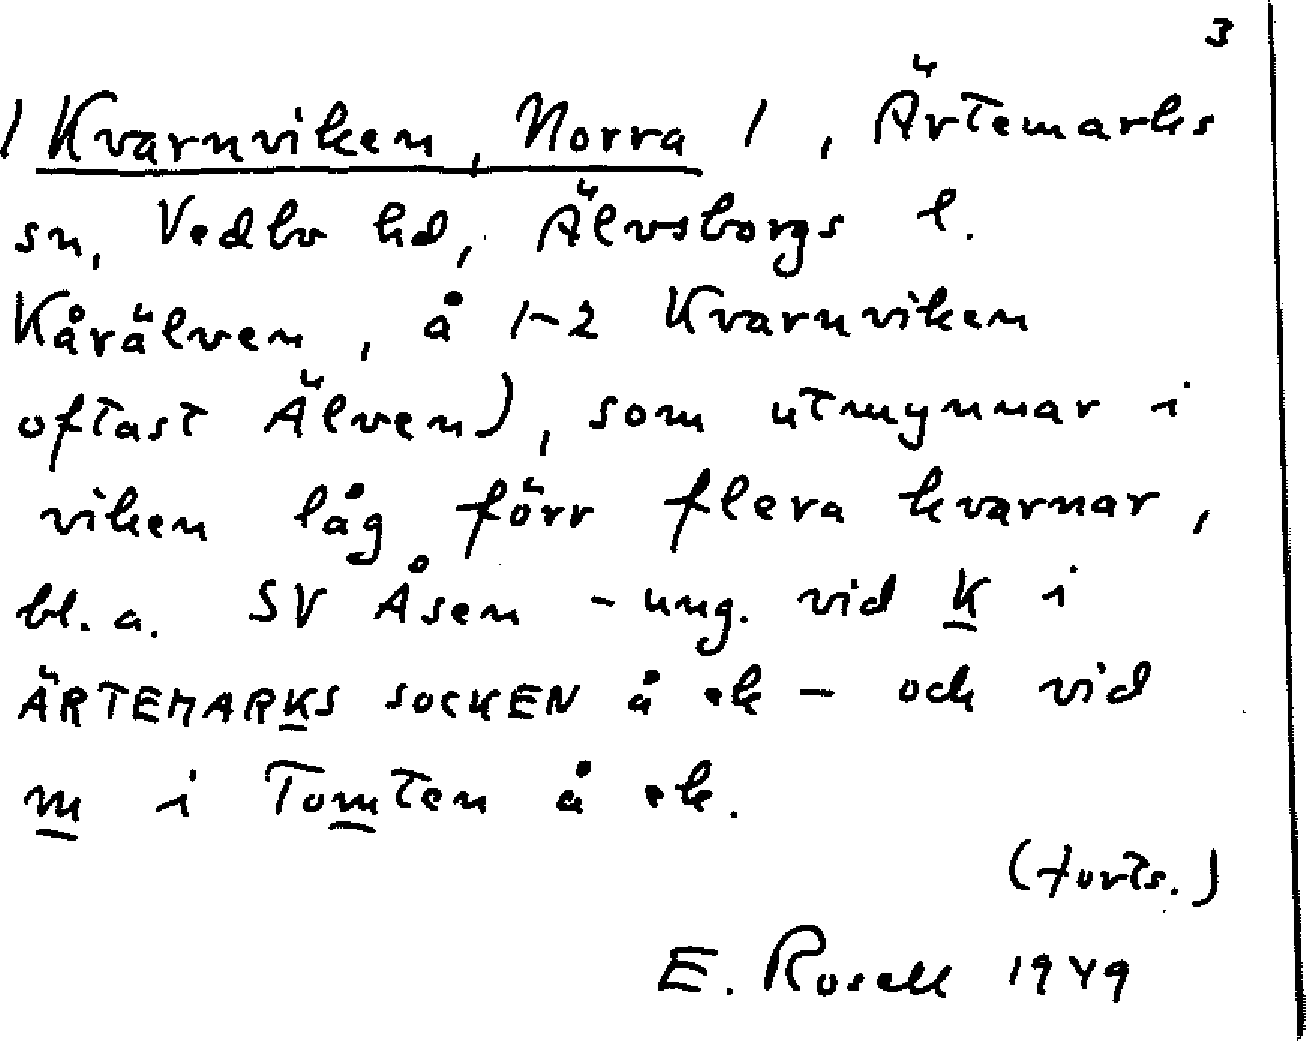 3
/ Kvarnviken, Norra /, Ärtemarks
sn, Vedbo hd, Älvsborgs l.
Kårälven, å 1-2 Kvarnviken
oftast Älven), som utmynnar i
viken låg förr flera kvarnar,
bl. a. SV Åsen - ung. vid K i
ÄRTEMARKS SOCKEN å ek - och vid
m i Tomten å ek.
(forts.)
E. Rosell 1949